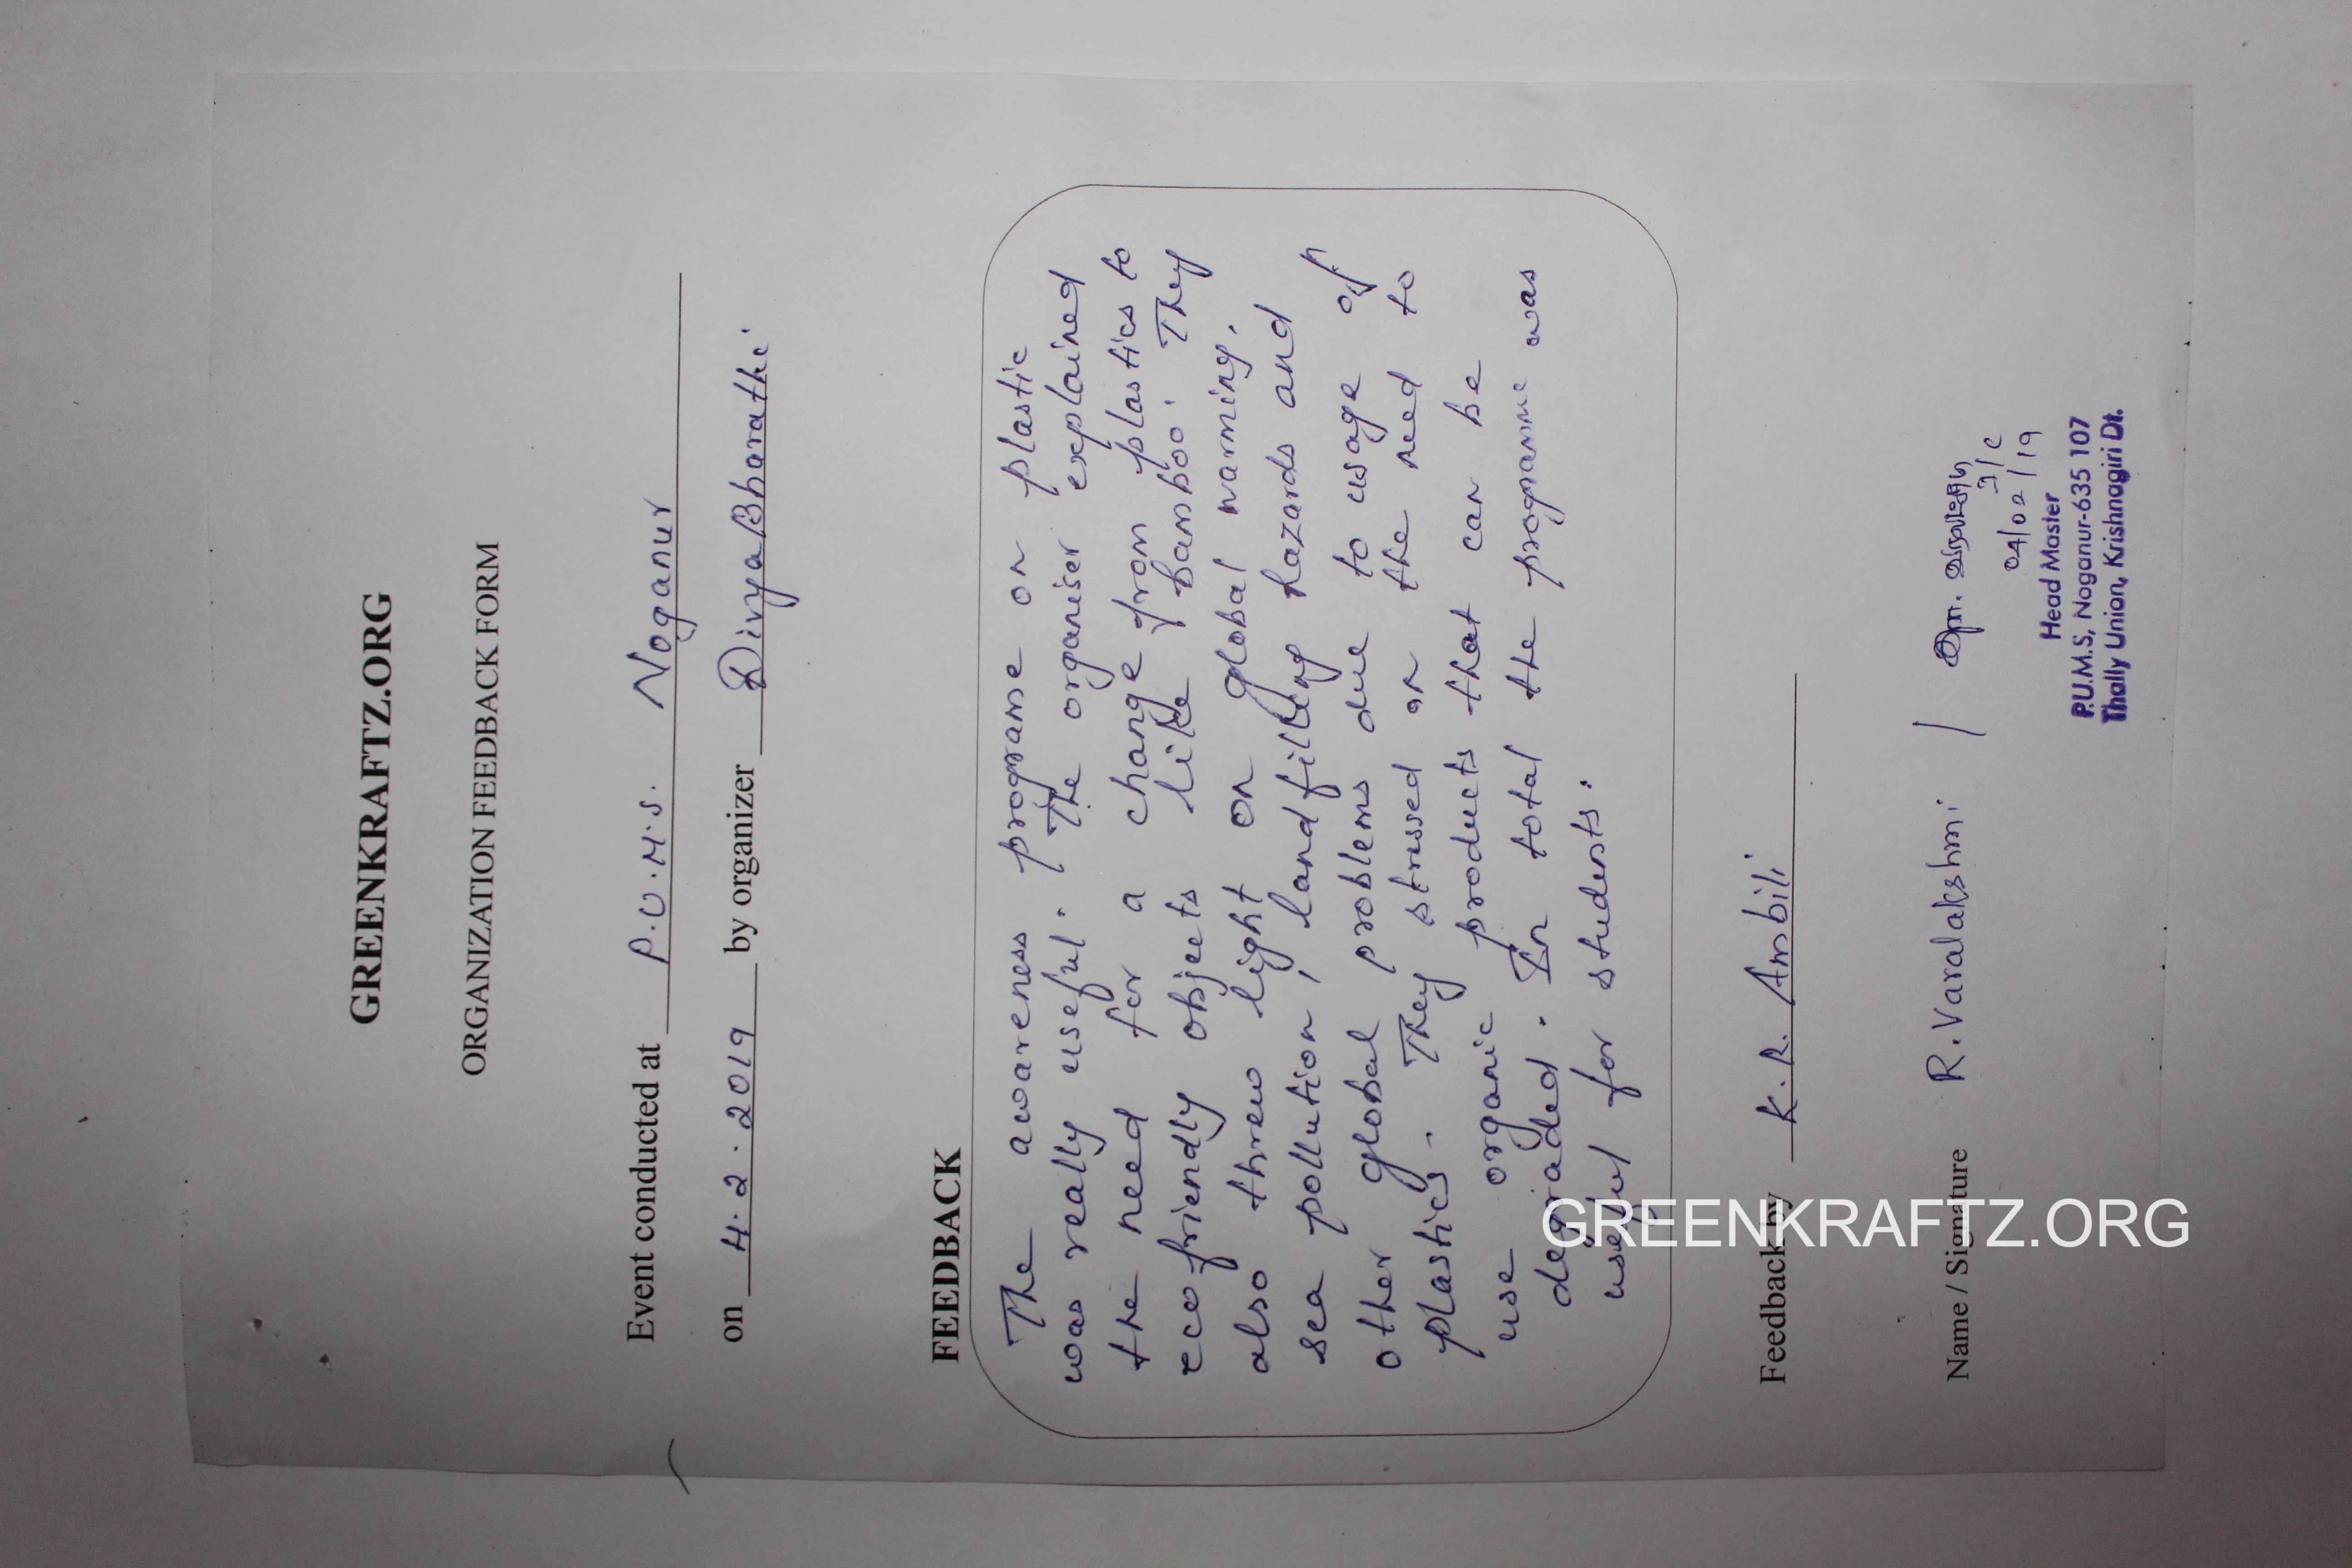 GREENKRAFTZ.ORG
ORGANIZATION FEEDBACK FORM
Event conducted at P.U.M.S. Noganur
on 4.2.2019 by organizer DivyaBharathi
FEEDBACK
The awareness programe on plastic
was really useful. The organiser explained
the need for a change from plastics to
eco friendly objects like bamboo. They
also threw light on global warming,
sea pollution, landfilling hazards and
other global problems due to usage of
plastics. They stressed on the need to
use organic products that can be
degraded. In total the programme was
useful for students.
Feedback by K.R. Ambili
Name / Signature R. Varalakshmi /
I/C
04/02/19
Head Master
P.U.M.S, Noganur-635 107
Thally Union, Krishnagiri Dt.
GREENKRAFTZ.ORG